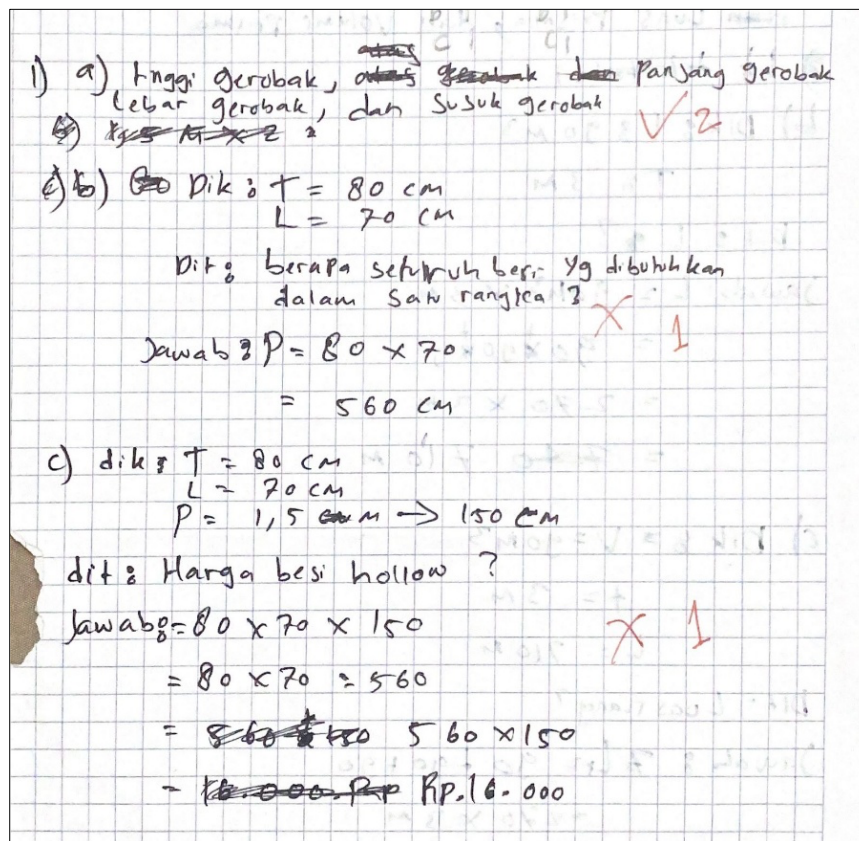 1) a) tinggi gerobak, Panjang gerobak
lebar gerobak, dan susuk gerobak
√ 2
b) Dik : T = 80 cm
L = 70 cm
Dit : berapa seluruh besi yg dibutuhkan
dalam satu rangka ?
X 1
Jawab : P = 80 x 70
= 560 cm
c) dik : T = 80 cm
L = 70 cm
P = 1,5 m → 150 cm
dit : Harga besi hollow ?
Jawab : = 80 x 70 x 150
X 1
= 80 x 70 = 560
= 560 x 150
= Rp. 16.000